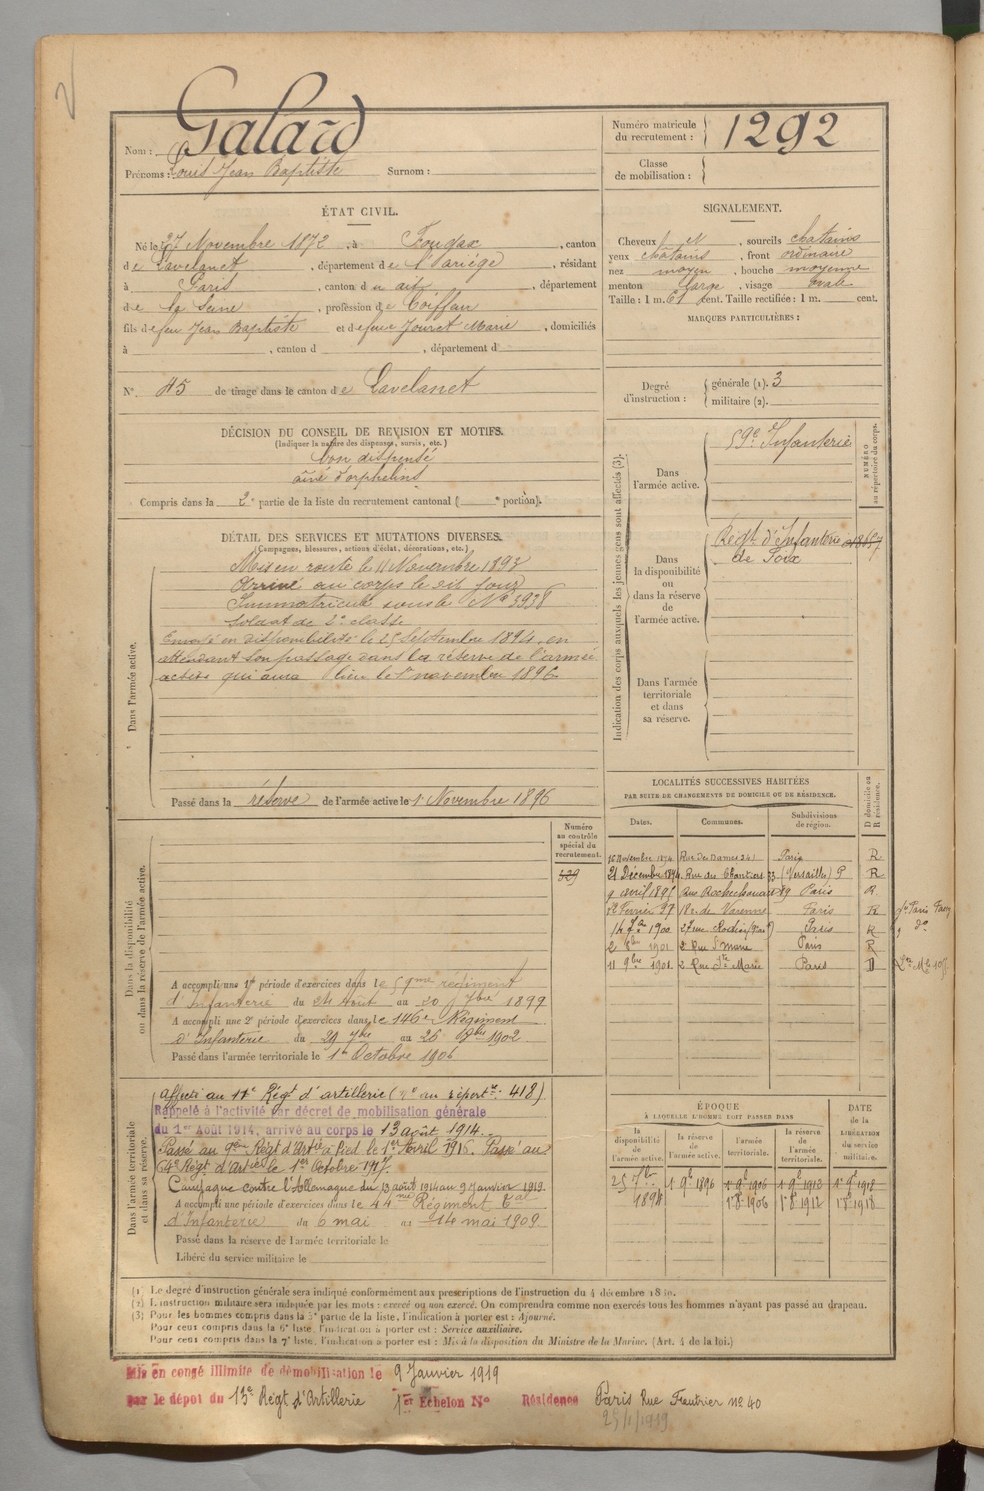 Galard
Nom :
Prénoms : Louis Jean Baptiste Surnom :
Numéro matricule du recrutement : 1292
Classe de mobilisation :
ÉTAT CIVIL.
Né le 27 Novembre 1872, à Fougax, canton
de Lavelanet, département de l'Ariège, résidant
à Paris, canton du dit, département
de la Seine, profession de Coiffeur
fils de feu Jean Baptiste et de feue Jouret Marie, domiciliés
à , canton d , département d
N° 45 de tirage dans le canton de Lavelanet
SIGNALEMENT.
Cheveux , sourcils chatains
yeux chatains, front ordinaire
nez moyen, bouche moyenne
menton large, visage ovale
Taille : 1 m. 61 cent. Taille rectifiée : 1 m. cent.
MARQUES PARTICULIÈRES :
Degré d'instruction :
générale (1). 3
militaire (2).
DÉCISION DU CONSEIL DE REVISION ET MOTIFS.
(Indiquer la nature des dispenses, sursis, etc.)
bon dispensé
aîné d'orphelins
Compris dans la 2e partie de la liste du recrutement cantonal ( e portion).
DÉTAIL DES SERVICES ET MUTATIONS DIVERSES.
(Campagnes, blessures, actions d'éclat, décorations, etc.)
Dans l'armée active.
Mis en route le 11 Novembre 1893
Arrivé au corps le dit jour
Immatriculé sous le No 3938
Soldat de 2e classe
Envoyé en disponibilité le 25 Septembre 1894, en
attendant son passage dans la réserve de l'armée
active qui aura lieu le 1er novembre 1896
Passé dans la réserve de l'armée active le 1 Novembre 1896
Indication des corps auxquels les jeunes gens sont affectés (3).
NUMÉRO au répertoire du corps.
Dans l'armée active.
59e Infanterie
Dans la disponibilité ou dans la réserve de l'armée active.
Régt d'Infanterie
de Foix
Dans l'armée territoriale et dans sa réserve.
Dans la disponibilité ou dans la réserve de l'armée active.
Numéro au contrôle spécial du recrutement.
529
A accompli une 1re période d'exercices dans le 59me régiment
d'Infanterie du 24 Août au 20 7bre 1899
A accompli une 2e période d'exercices dans le 146e Régiment
d'Infanterie du 29 7bre au 26 8bre 1902
Passé dans l'armée territoriale le 1er Octobre 1906
LOCALITÉS SUCCESSIVES HABITÉES
PAR SUITE DE CHANGEMENTS DE DOMICILE OU DE RÉSIDENCE.
Dates. Communes. Subdivisions de région. D domicile ou R résidence.
16 Novembre 1894 Rue des Dames 24 Paris R
21 Décembre 1894 Rue des Chantiers 33 (Versailles) P R
9 avril 1895 Rue Rochechouart 89 Paris R
12 Février 97 18 r. de Varenne Paris R
14 1900 27 rue Paris R
2 8bre 1901 2 Rue Ste Marie Paris R
11 9bre 1901 2 Rue Ste Marie Paris D
Dans l'armée territoriale et dans sa réserve.
Affecté au 11e Régt d'artillerie (No au répertre 418).
Rappelé à l'activité par décret de mobilisation générale
du 1er Août 1914, arrivé au corps le 13 août 1914.
Passé au 9ème Régt d'Artie à Pied le 1er Avril 1916. Passé au
Régt d'Artie le 1er Octobre 1917.
Campagne contre l'Allemagne du 13 août 1914 au 9 Janvier 1919.
A accompli une période d'exercices dans le 44me Régiment Tal
d'Infanterie du 6 mai au 14 mai 1909
Passé dans la réserve de l'armée territoriale le
Libéré du service militaire le
ÉPOQUE
À LAQUELLE L'HOMME DOIT PASSER DANS
DATE DE LA LIBÉRATION du service militaire.
la disponibilité de l'armée active. la réserve de l'armée active. l'armée territoriale. la réserve de l'armée territoriale.
25 7bre 1894 1 9e 1896 1 9e 1906 1 9e 1912 1 9e 1918
1 8e 1906 1 8e 1912 1 8e 1918
(1) Le degré d'instruction générale sera indiqué conformément aux prescriptions de l'instruction du 4 décembre 1889.
(2) L'instruction militaire sera indiquée par les mots : exercé ou non exercé. On comprendra comme non exercés tous les hommes n'ayant pas passé au drapeau.
(3) Pour les hommes compris dans la 5e partie de la liste, l'indication à porter est : Ajourné.
Pour ceux compris dans la 6e liste, l'indication à porter est : Service auxiliaire.
Pour ceux compris dans la 7e liste, l'indication à porter est : Mis à la disposition du Ministre de la Marine. (Art. 4 de la loi.)
Mis en congé illimité de démobilisation le 9 Janvier 1919
par le dépôt du 13e Régt d'Artillerie 1er Echelon No Résidence Paris Rue Fautrier no 40
25/1/1919